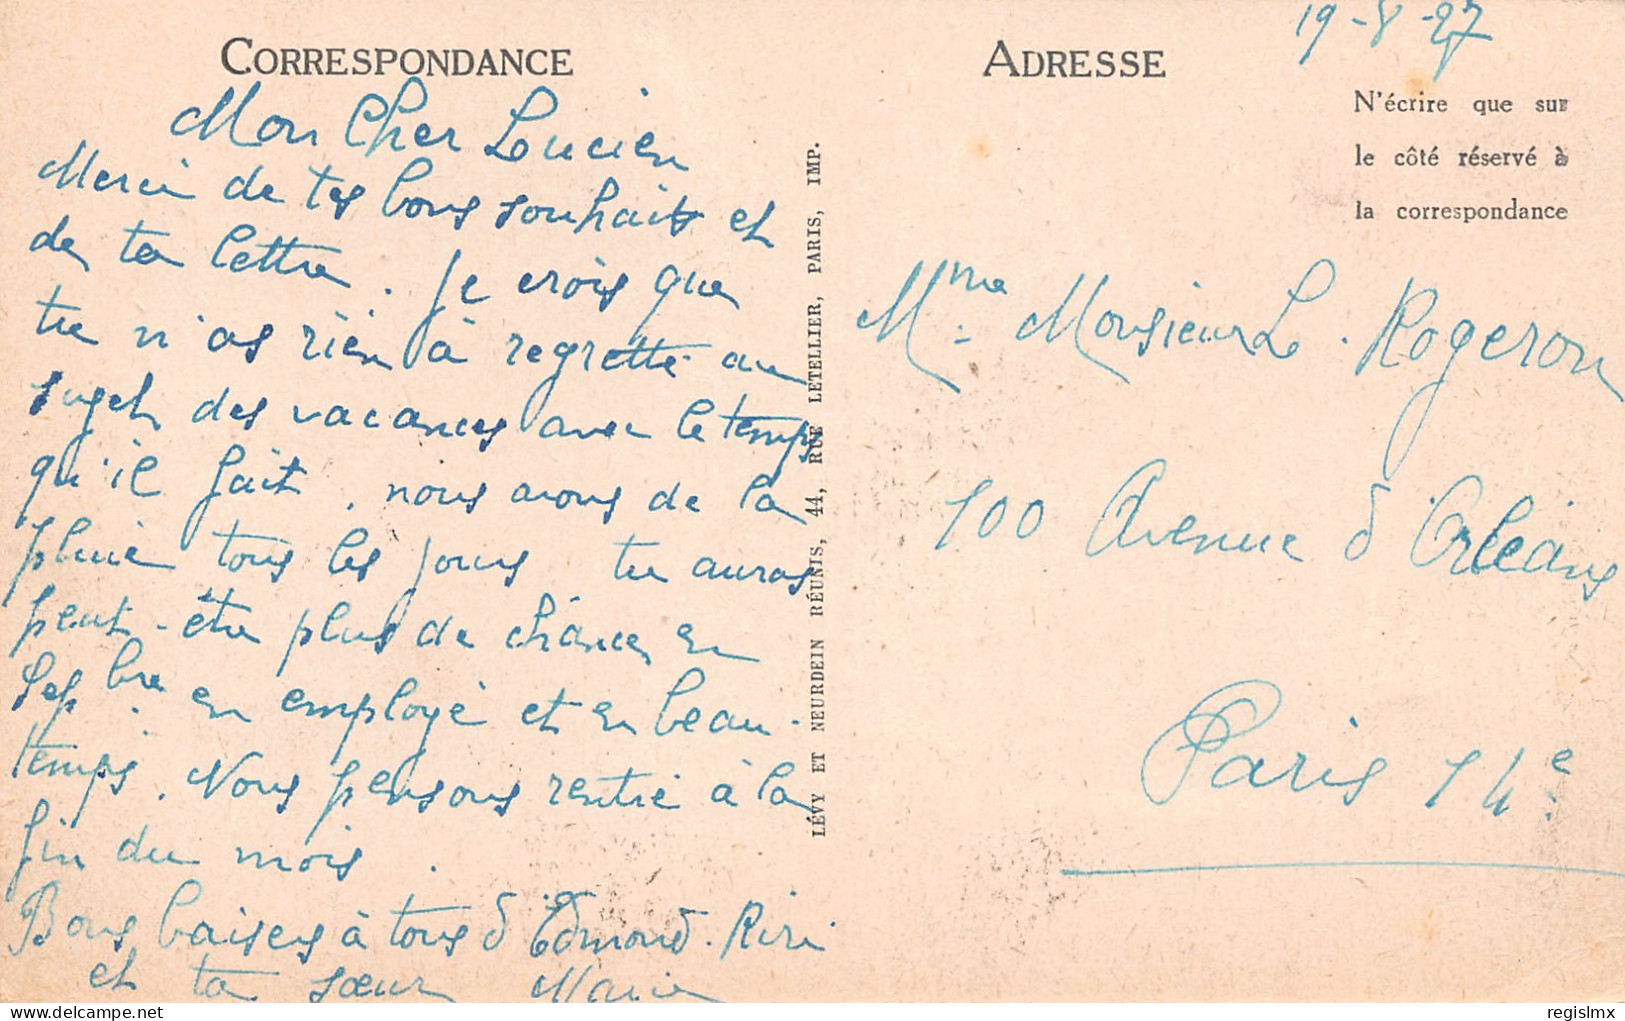 19-8-27
CORRESPONDANCE
Mon Cher Lucien
Merci de tes bons souhaits et
de ta lettre. Je crois que
tu n'as rien à regretter au
sujet des vacances avec le temps
qu'il fait. nous avons de la
pluie tous les jours tu auras
peut-être plus de chance en
Sep bre en employé et en beau-
temps. Nous pensons rentré à la
fin du mois.
Bons baisers à tous d'Edmond. Riri
et ta sœur Marie
LÉVY ET NEURDEIN RÉUNIS, 44, RUE LETELLIER, PARIS, IMP.
ADRESSE
N'écrire que sur
le côté réservé à
la correspondance
Mme Monsieur L. Rogeron
100 Avenue d'Orléans
Paris 14e
regislmx